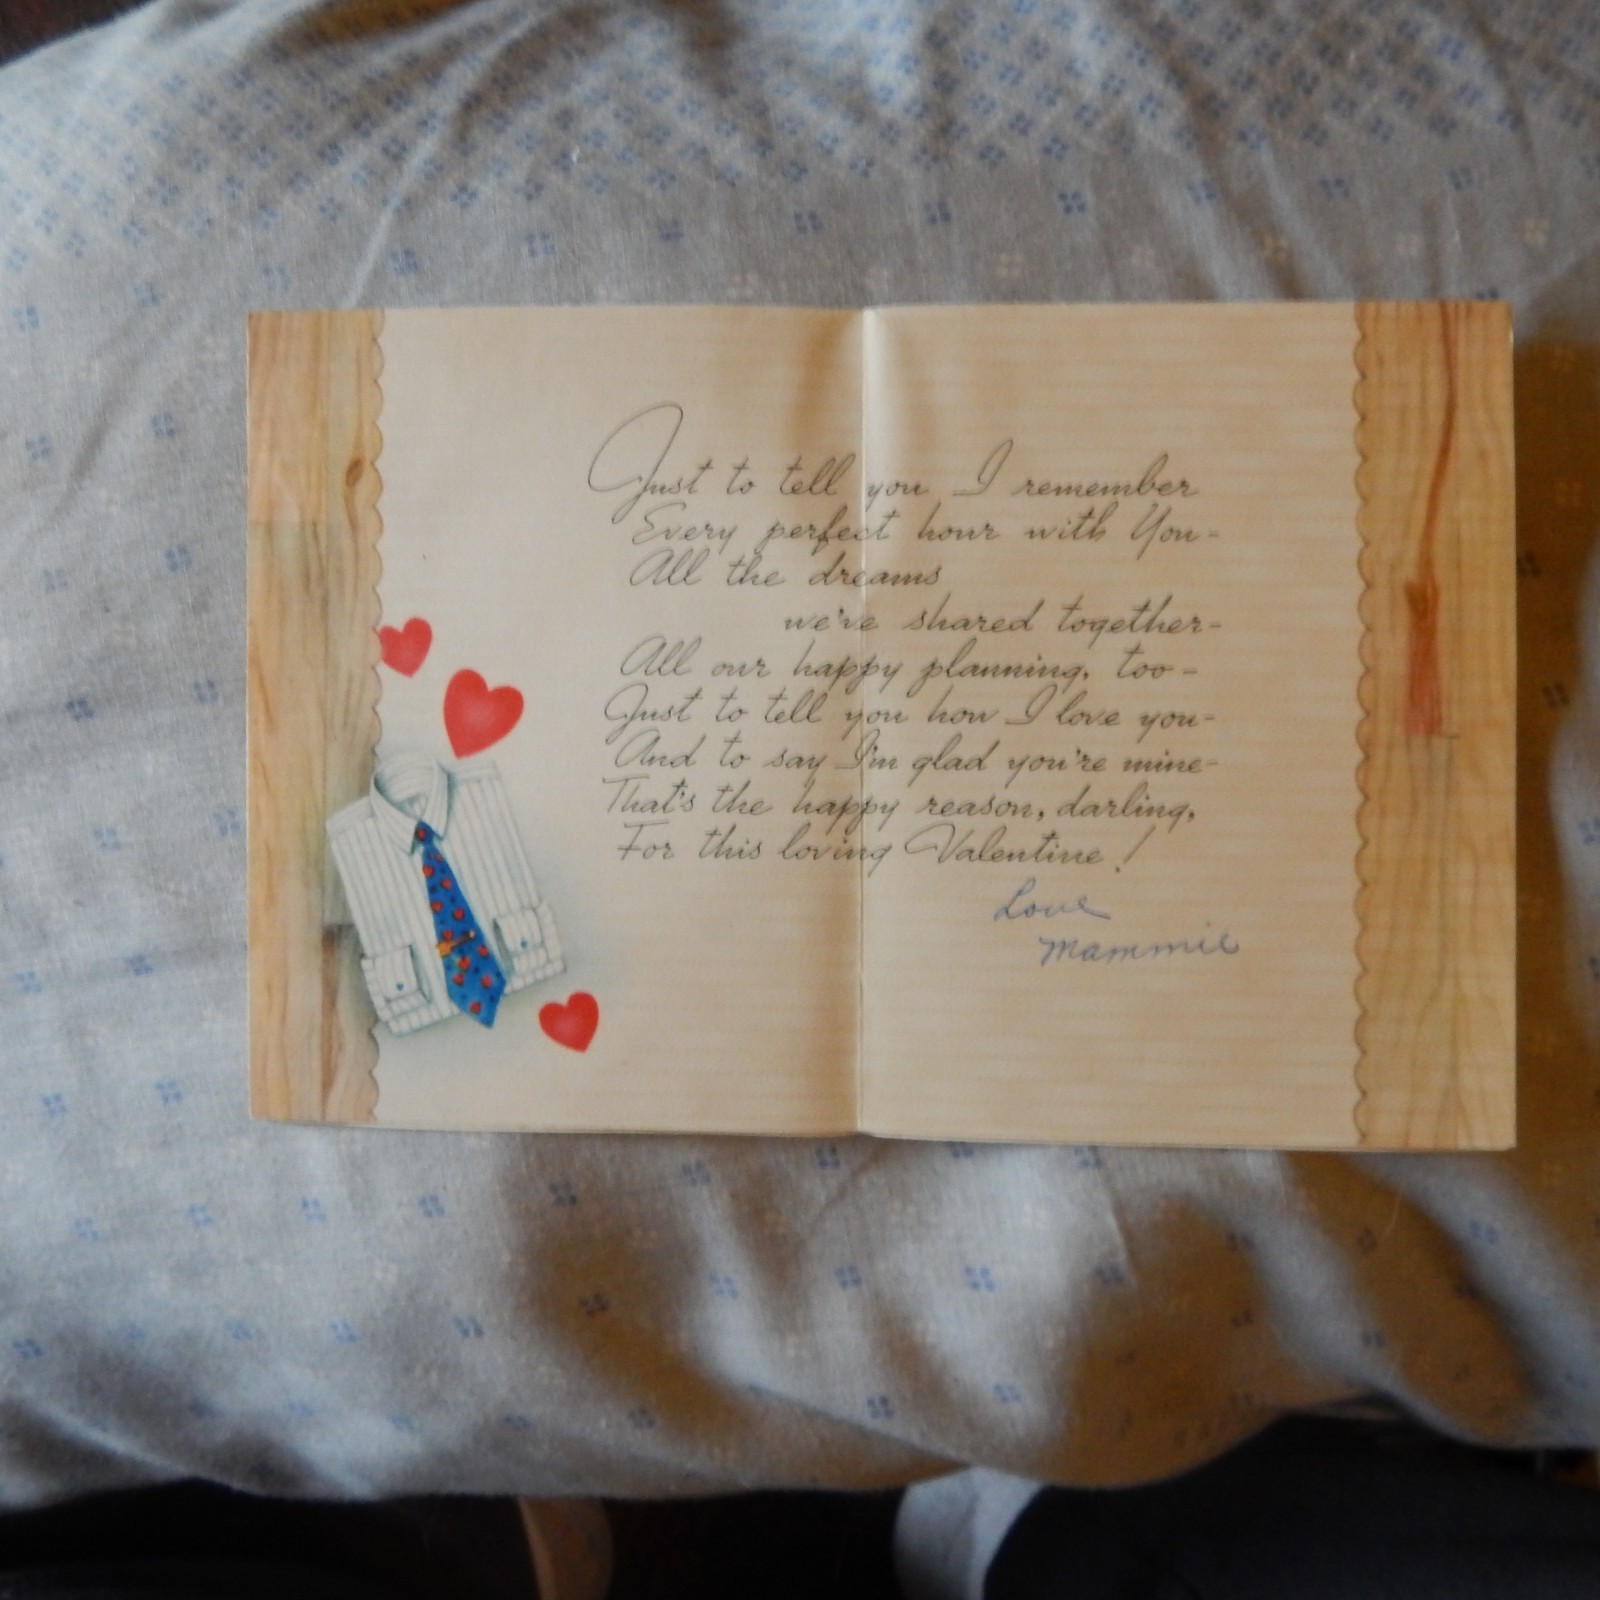 Just to tell you I remember
Every perfect hour with You-
All the dreams
we've shared together-
All our happy planning, too-
Just to tell you how I love you-
And to say I'm glad you're mine-
That's the happy reason, darling,
For this loving Valentine!
Love
Mammie